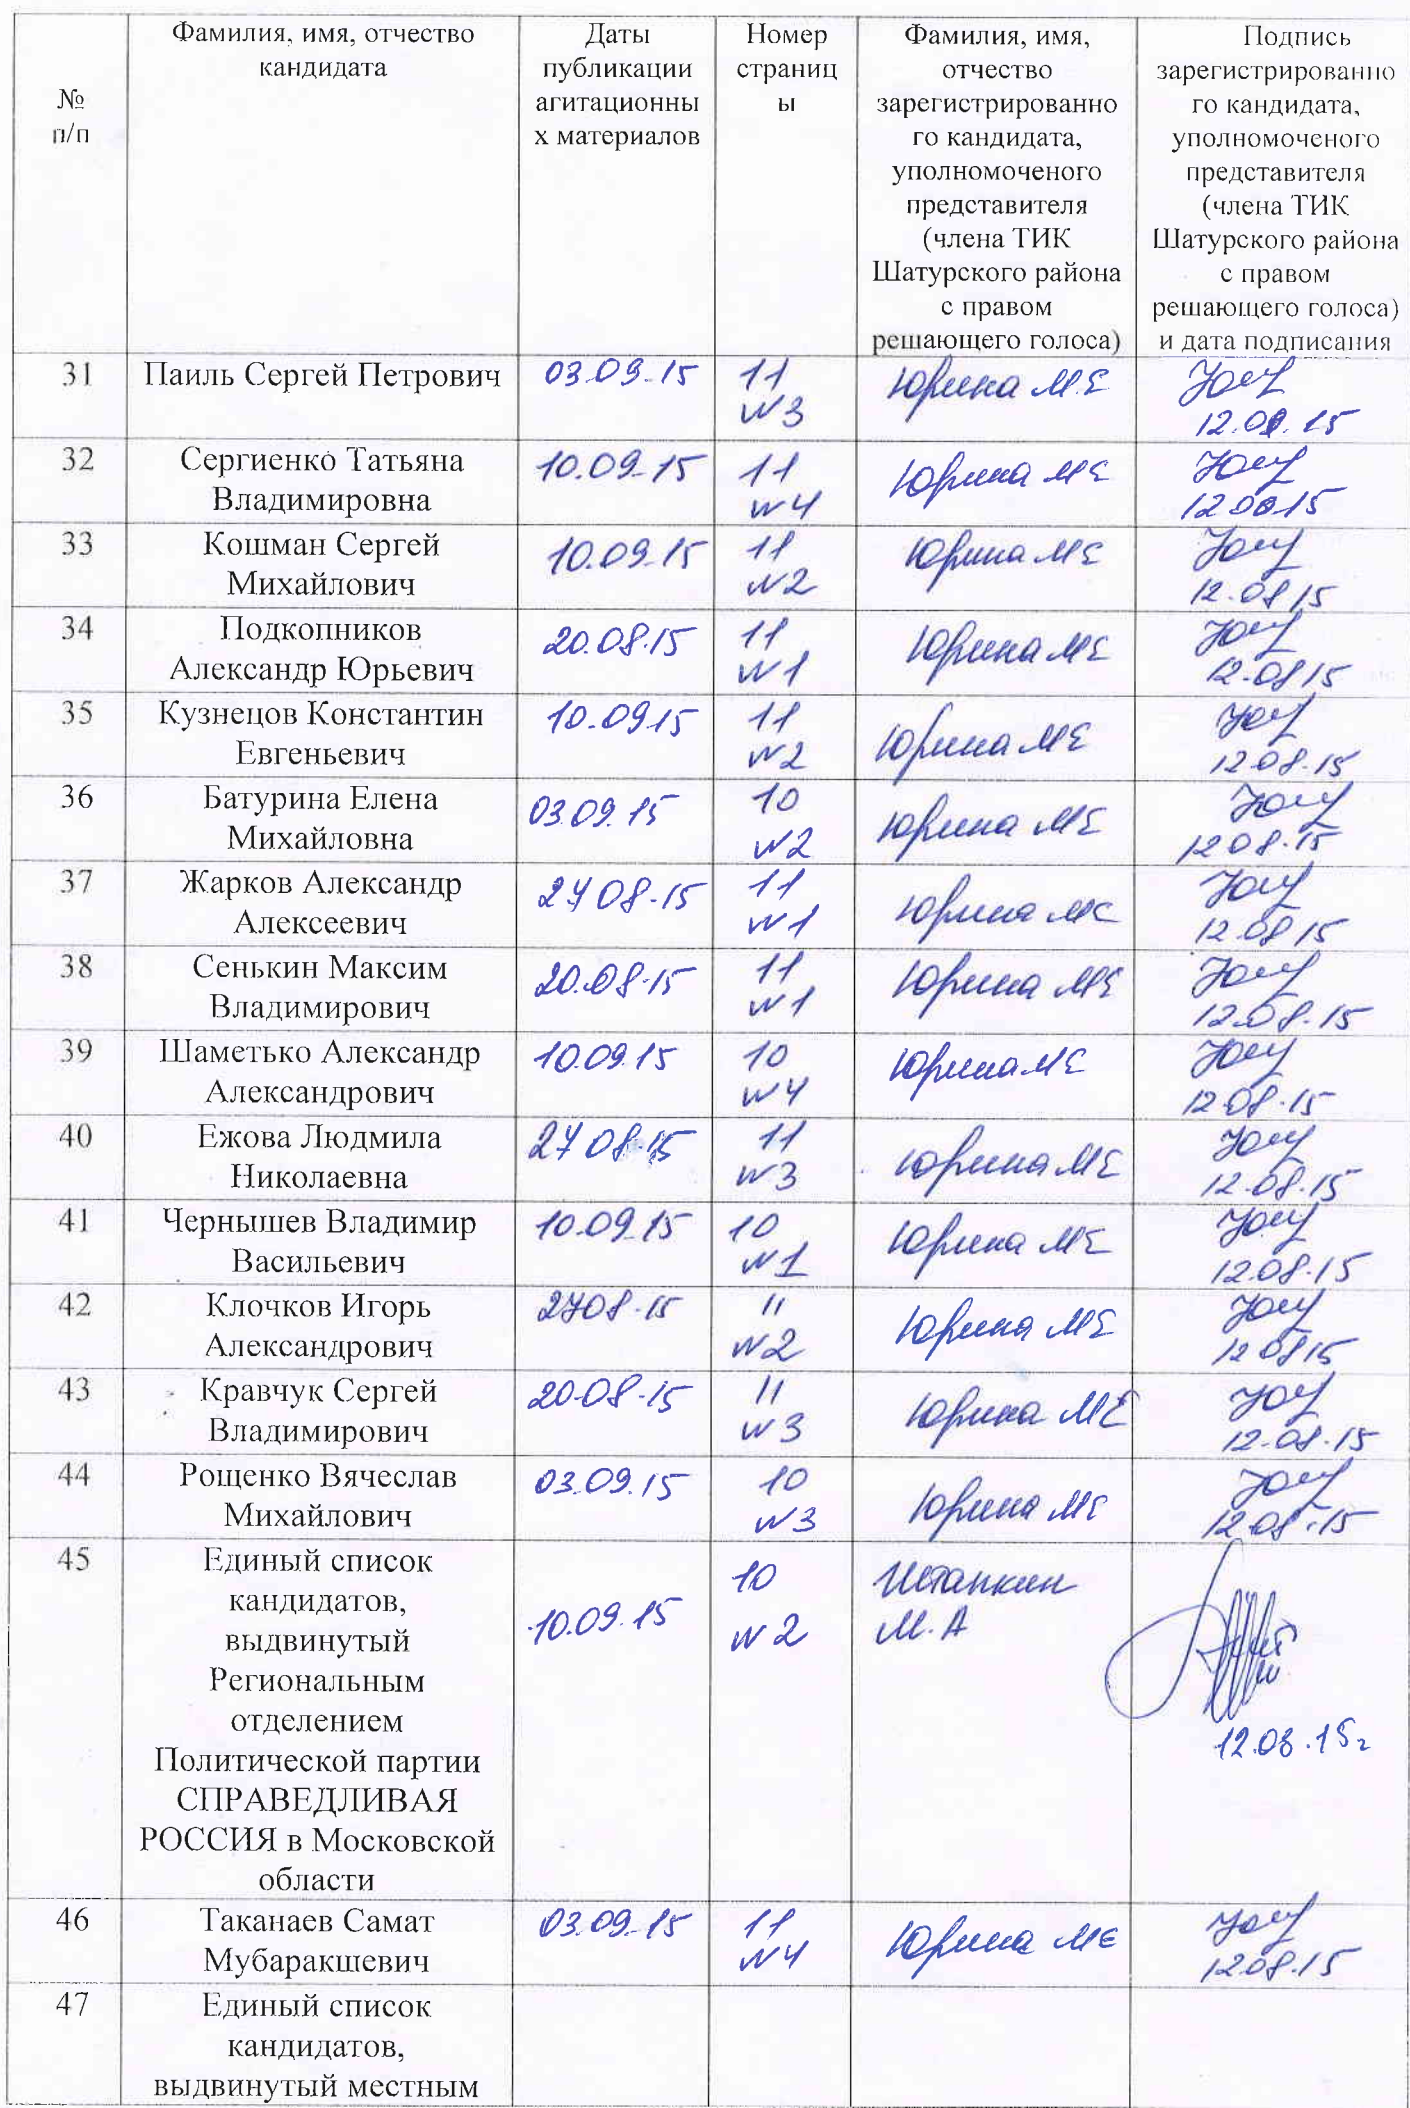 №
п/п
Фамилия, имя, отчество
кандидата
Даты
публикации
агитационны
х материалов
Номер
страниц
ы
Фамилия, имя,
отчество
зарегистрированно
го кандидата,
уполномоченого
представителя
(члена ТИК
Шатурского района
с правом
решающего голоса)
Подпись
зарегистрированно
го кандидата,
уполномоченого
представителя
(члена ТИК
Шатурского района
с правом
решающего голоса)
и дата подписания
31
Паиль Сергей Петрович
03.09.15
11
№3
Юрина МЕ
12.08.15
32
Сергиенко Татьяна
Владимировна
10.09.15
11
№4
Юрина МЕ
12.08.15
33
Кошман Сергей
Михайлович
10.09.15
11
№2
Юрина МЕ
12.08 15
34
Подкопников
Александр Юрьевич
20.08.15
11
№1
Юрина МЕ
12.08 15
35
Кузнецов Константин
Евгеньевич
10.09.15
11
№2
Юрина МЕ
12.08.15
36
Батурина Елена
Михайловна
03.09.15
10
№2
Юрина МЕ
12.08.15
37
Жарков Александр
Алексеевич
27 08.15
11
№1
Юрина МЕ
12.08 15
38
Сенькин Максим
Владимирович
20.08.15
11
№1
Юрина МЕ
12.08.15
39
Шаметько Александр
Александрович
10.09.15
10
№4
Юрина МЕ
12.08.15
40
Ежова Людмила
Николаевна
27 08.15
11
№3
Юрина МЕ
12.08.15
41
Чернышев Владимир
Васильевич
10.09.15
10
№1
Юрина МЕ
12.08.15
42
Клочков Игорь
Александрович
27 08.15
11
№2
Юрина МЕ
12 08 15
43
Кравчук Сергей
Владимирович
20.08.15
11
№3
Юрина МЕ
12.08.15
44
Рощенко Вячеслав
Михайлович
03.09.15
10
№3
Юрина МЕ
12.08.15
45
Единый список
кандидатов,
выдвинутый
Региональным
отделением
Политической партии
СПРАВЕДЛИВАЯ
РОССИЯ в Московской
области
10.09.15
10
№2
М.А
12.08.15г
46
Таканаев Самат
Мубаракшевич
03.09.15
11
№4
Юрина МЕ
12.08.15
47
Единый список
кандидатов,
выдвинутый местным